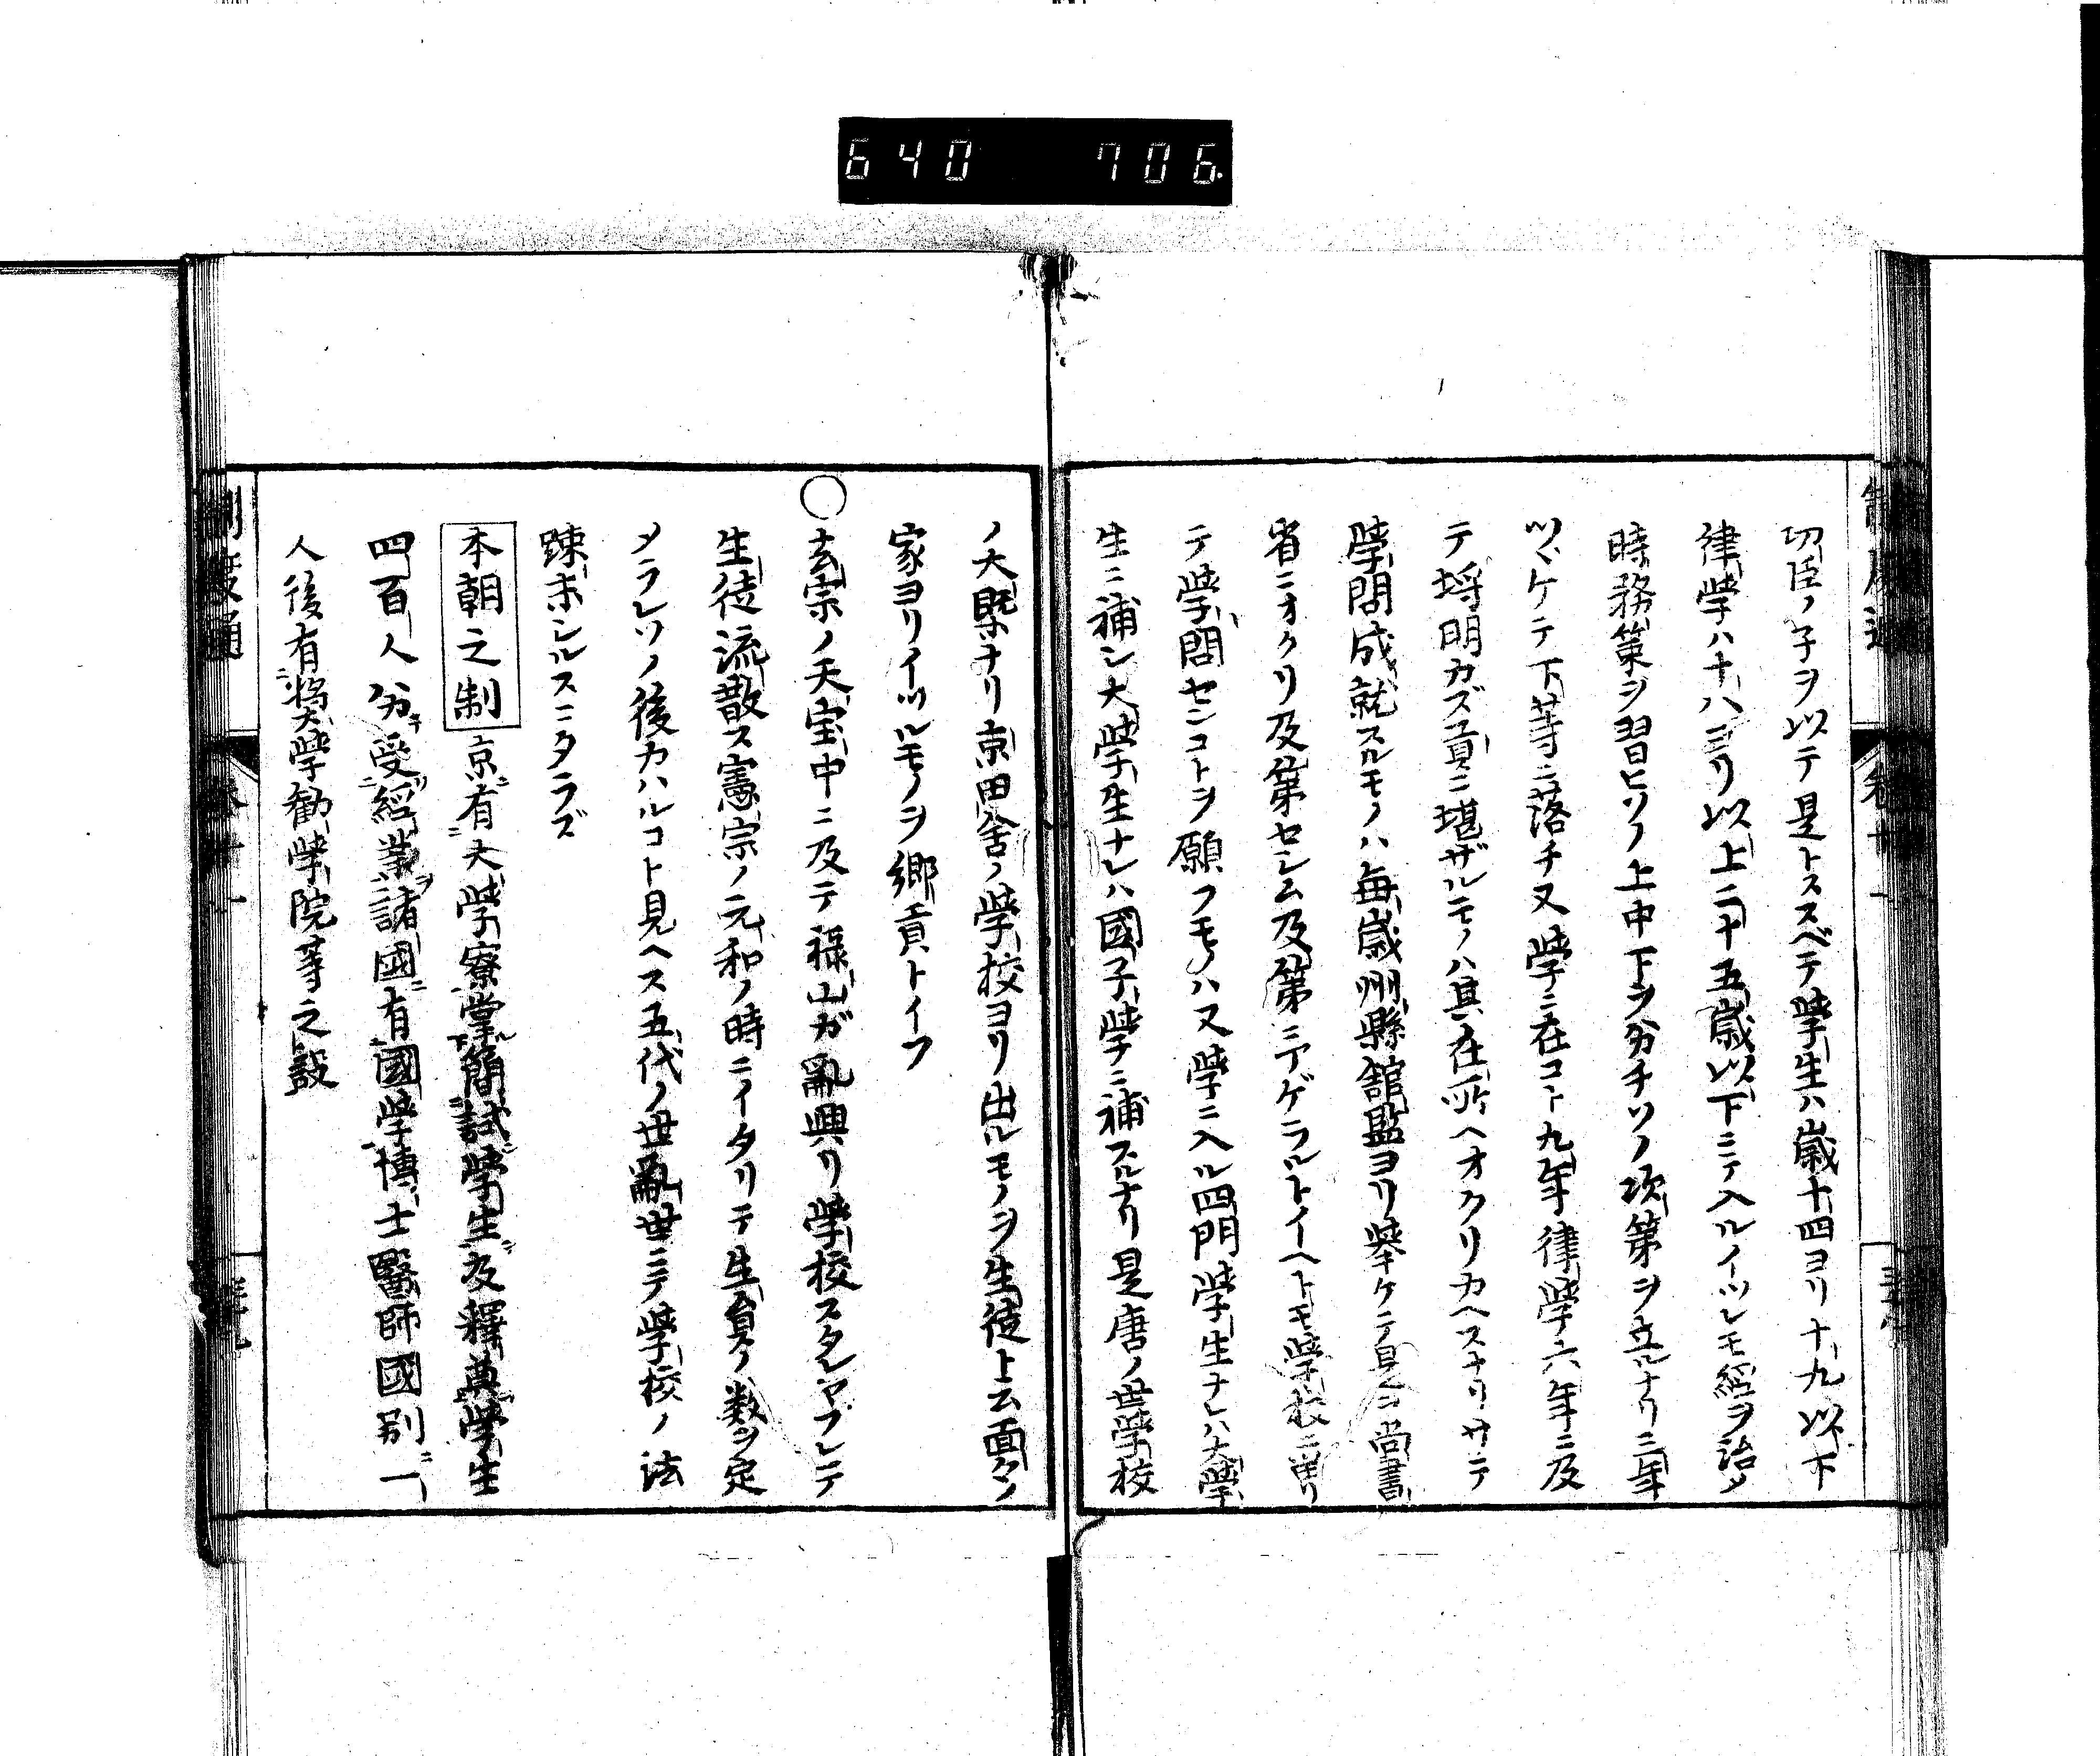 640 706
功臣ノ子ヲ以テ是トススベテ學生ハ歳十四ヨリ十九以下
律學ハ十八ヨリ以上二十五歳以下ニテ入ルイツレモ經ヲ治メ
時務策ヲ習ヒソノ上中下ヲ分チソノ次第ヲ立ルナリ三年
ツヾケテ下等ニ落チ又學ニ在コト九年律學六年ニ及
テ埒明カズ貢ニ堪ザルモノハ其在所ヘオクリカヘスナリサテ
學問成就スルモノハ毎歳州縣舘監ヨリ挙ケテ是ヲ尚書
省ニオクリ及第セシム及第ニアゲラルトイヘトモ学校ニ留リ
テ学問センコトヲ願フモノハ又學ニ入ル四門学生ナレハ大學
生ニ補シ大學生ナレハ國子學ニ補スルナリ是唐ノ世学校
ノ大槩ナリ京田舎ノ學校ヨリ出ルモノヲ生徒ト云面々ノ
家ヨリイツルモノヲ郷貢トイフ
○玄宗ノ天宝中ニ及テ禄山ガ亂興リ學校スタレヤブレテ
生徒流散ス憲宗ノ元和ノ時ニイタリテ生員ノ数ヲ定
メラレソノ後カハルコト見ヘス五代ノ世亂世ニテ学校ノ法
踈末シルスニタラズ
本朝之制 京有大学寮掌簡試学生及釋奠學生
四百人分受經業諸國有國学博士醫師國別一
人後有奨学勸学院等之設
制度通 巻十一